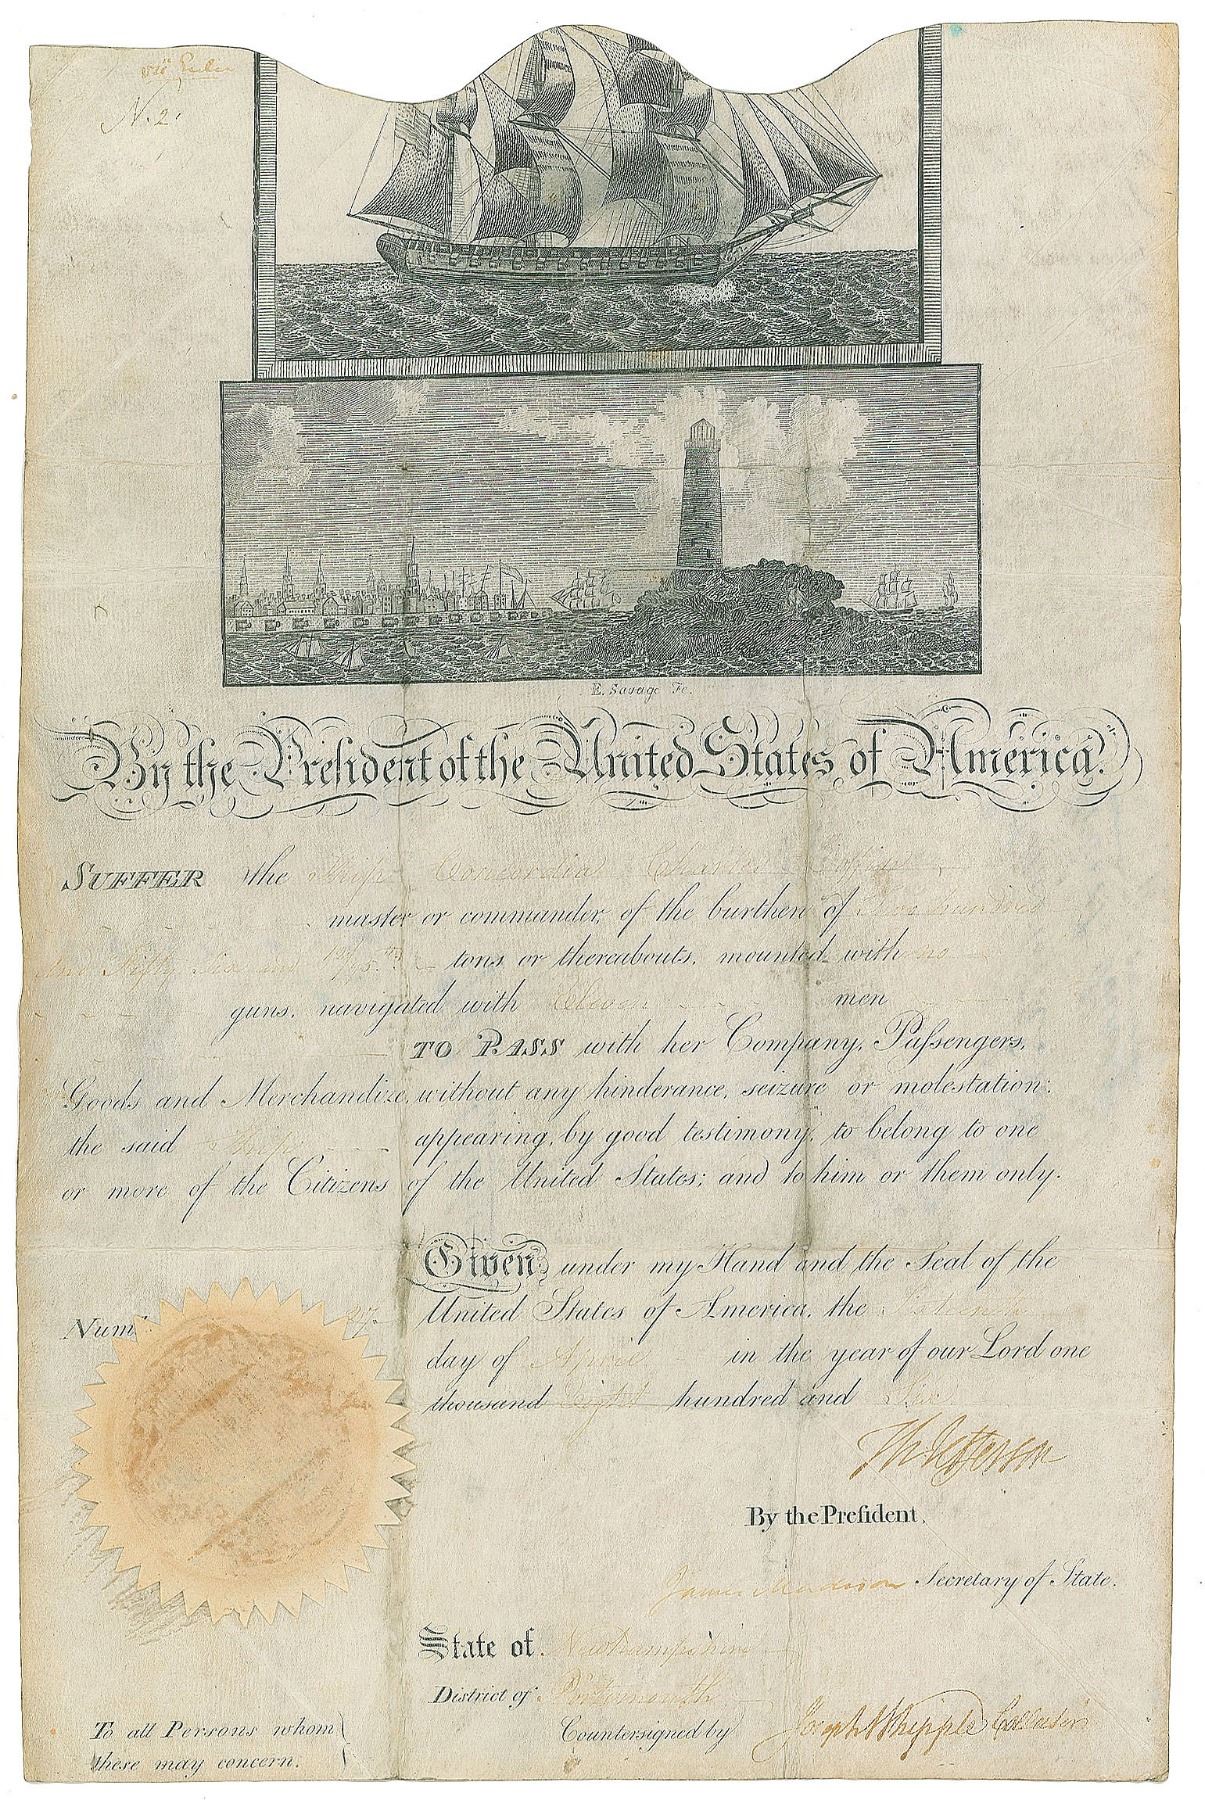 N. 2.
E. Savage Fc.
By the President of the United States of America.
SUFFER the Ship Concordia Charles Coffin
master or commander, of the burthen of Two hundred
and Fifty Six and tons or thereabouts, mounted with no
guns, navigated with Eleven men
TO PASS with her Company, Passengers,
Goods and Merchandize, without any hinderance, seizure or molestation:
the said Ship appearing, by good testimony, to belong to one
or more of the Citizens of the United States; and to him or them only.
Given under my Hand and the Seal of the
Num
United States of America, the
day of April in the year of our Lord one
thousand Eight hundred and Six
Th Jefferson
By the President,
James Madison Secretary of State.
State of Newhampshire
District of Portsmouth
Countersigned by Joseph Whipple Collector
To all Persons whom
these may concern.